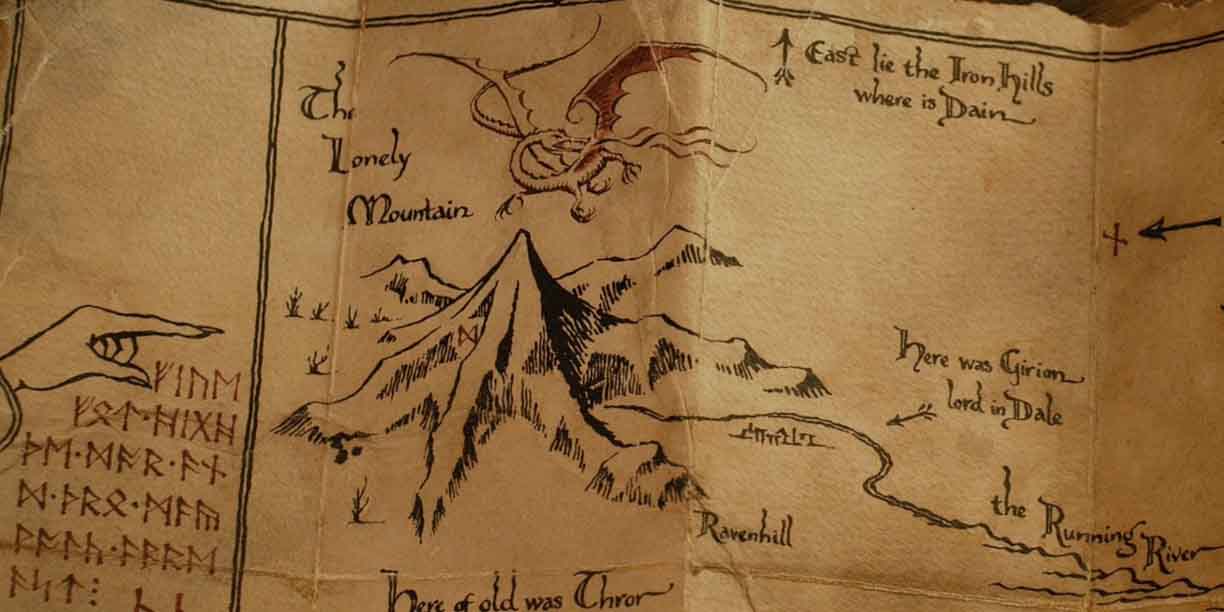 The
Lonely
Mountain
East lie the Iron Hills
where is Dain
ᛞ
Here was Girion
lord in Dale
the Running River
Ravenhill
Here of old was Thror
ᚠᛁᚢᛖ
ᚠᛟᛏ᛫ᚻᛁᚷᚻ
ᚦᛖ᛫ᛞᚩᚱ᛫ᚪᚾ
ᛞ᛫ᚦᚱᛟ᛫ᛗᚪᚣ
ᚹᚪᛚᚳ᛫ᚪᛒᚱᛖ
ᚪᛋᛏ⁝